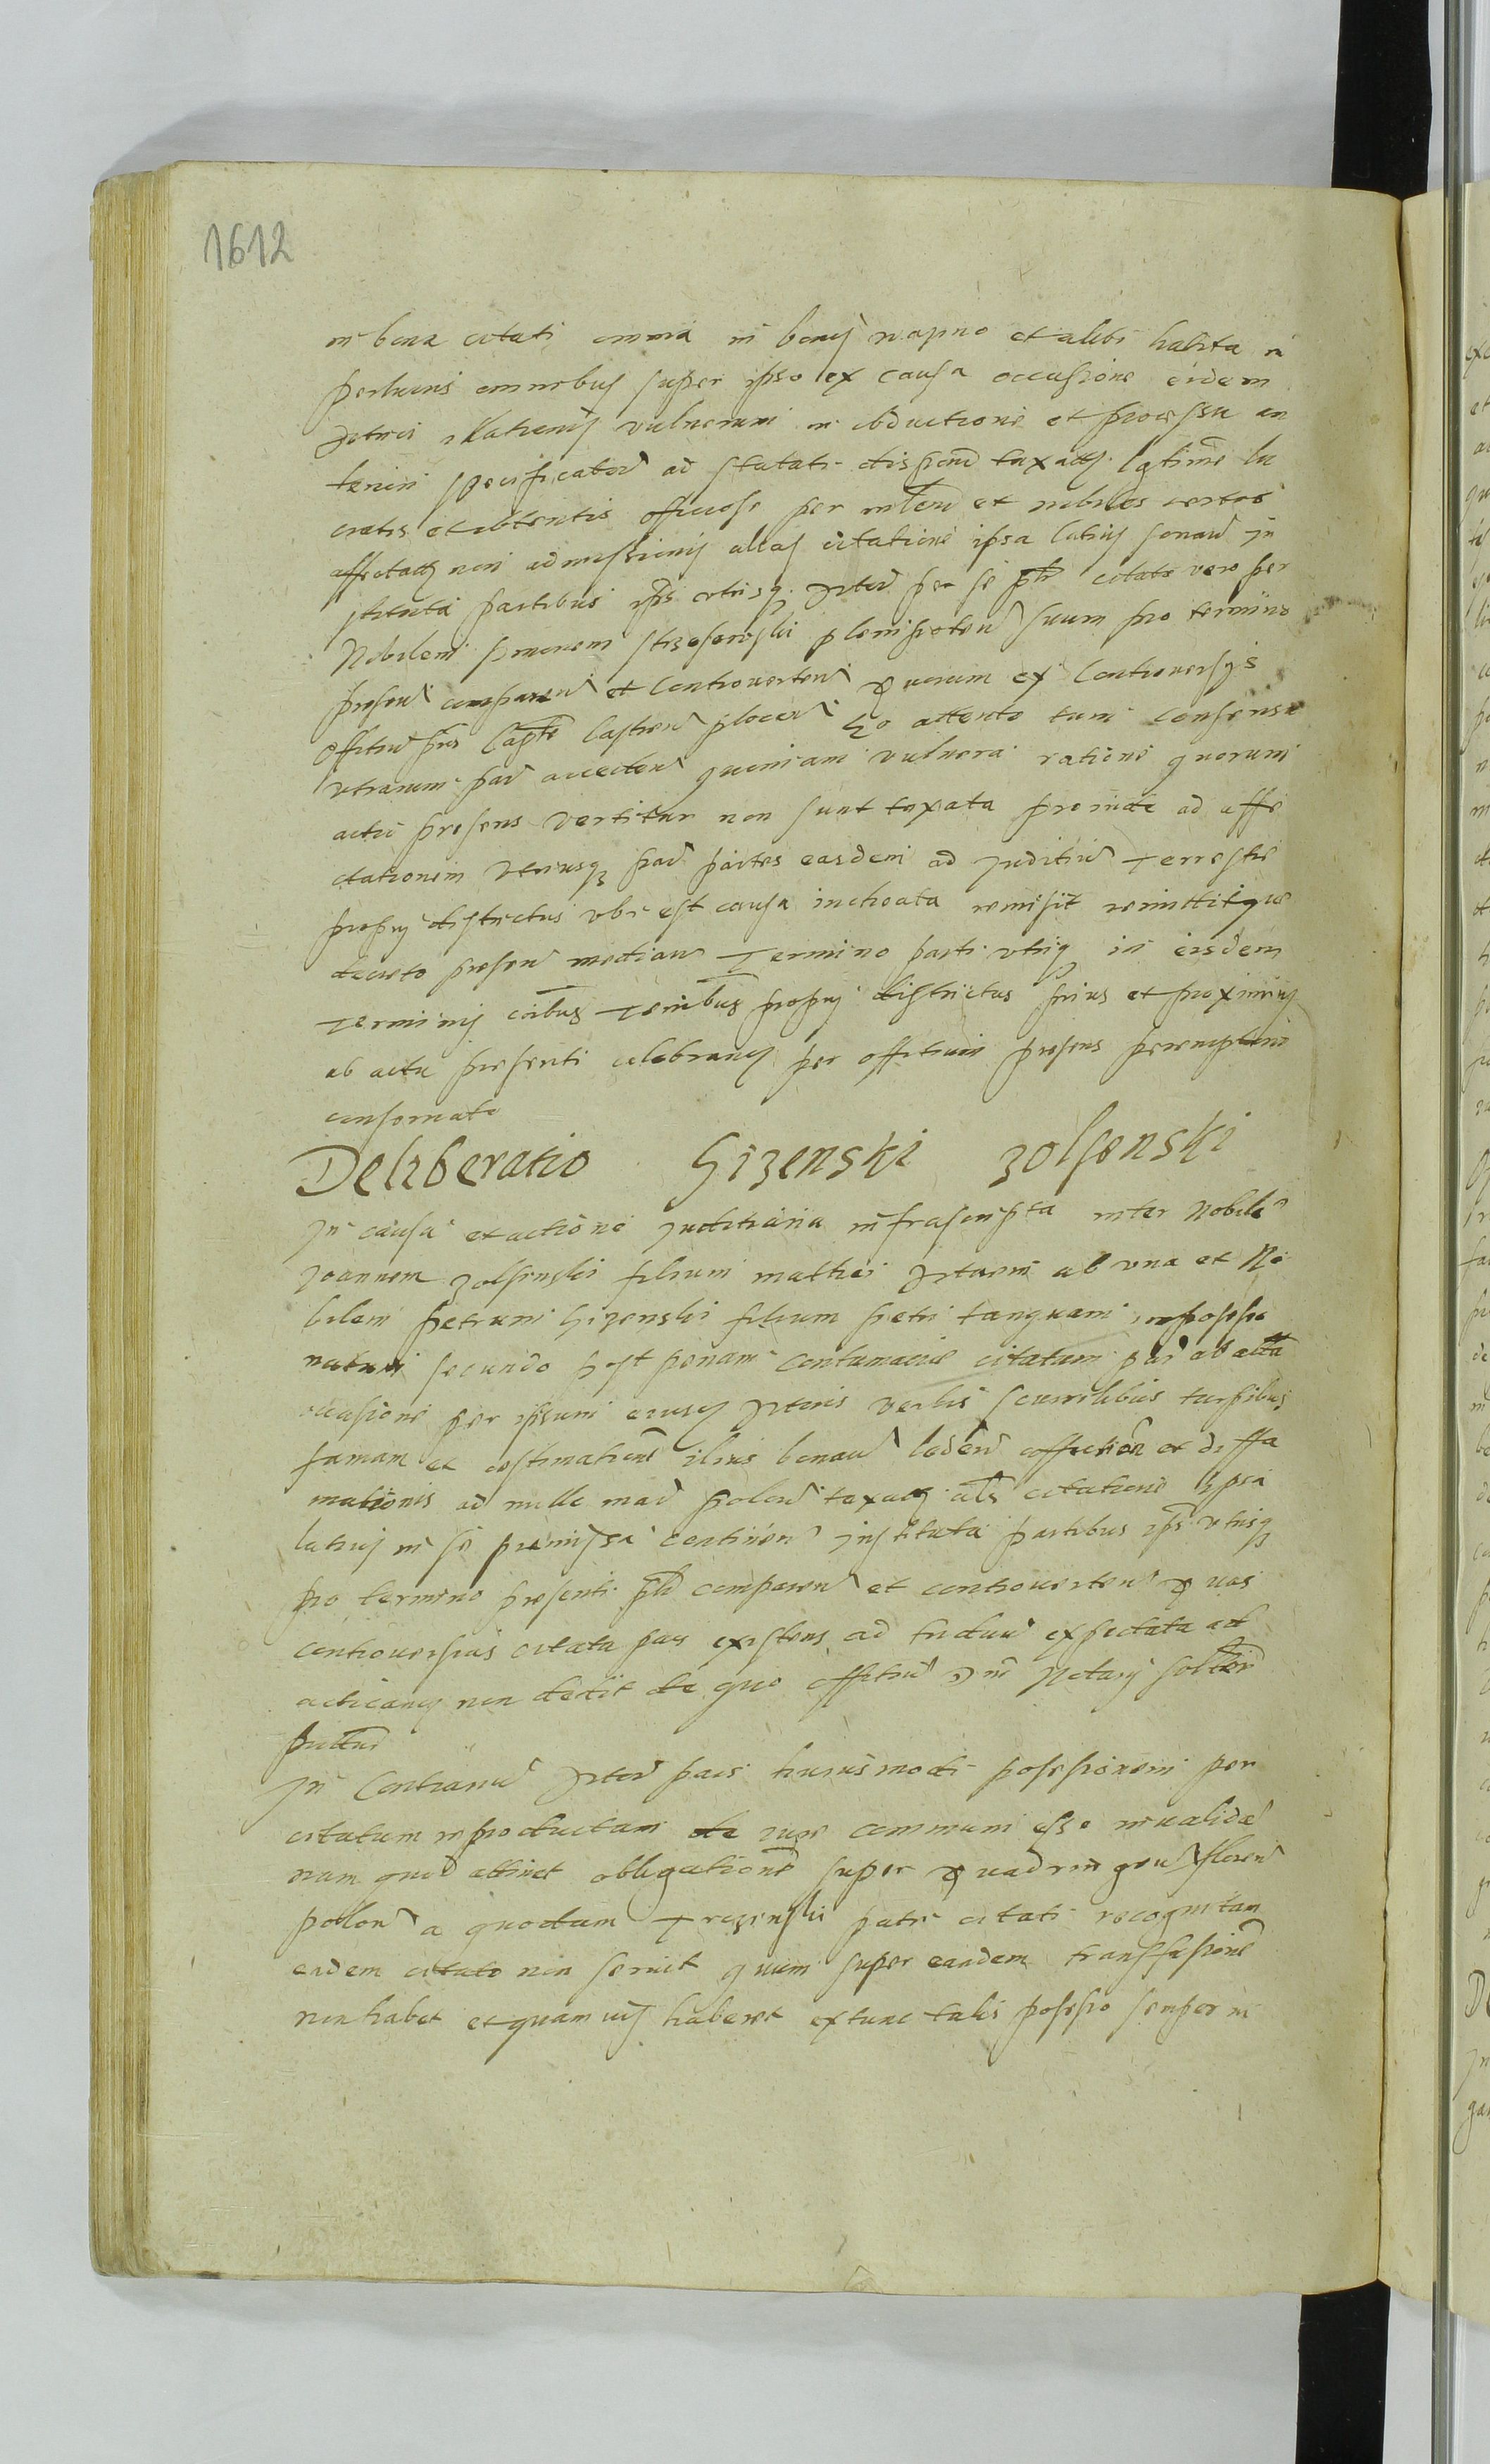 1612
in bona citati omnia in bonis wapno et alibi habita in
perlucris omnibus super ipso ex causa occasione eidem
actoris illationis vulnerum in obductione et processu an
teriori specificatorũ ad statuti dispend taxatas lgtime lu
cratis et obtentis officiose per mlem et nobiles certos
affectatas non admissionis alias citatione ipsa latius sonand In
stituta partibus ipsis utrisq Actor per se pnlr citato vero per
Nobilem simonem strzeszewski plenipoten suum pro termino
presenti comparen et controverten Quarum ex Controversys
Offitiũ pns Capte Castren plocen Eo attento tum consensu
utrarum par acceden quoniam vulnera ratione quorum
actio presens vertitur non sunt taxata proinde ad affe
ctationem utriusq par partes easdem ad Juditiũ Terrestre
propry districtus ubi est causa inchoata remisit remittitque
decreto presen median Termino parti utriq in eisdem
Terminis cãlibus Terribus propry districtus prius et proximius
ab actu presenti celebrans per offitium presens peremptorie
conservato
Deliberatio Gizenski zolsenski
In causa et actione Juditiaria infrascripta inter Nobile
Joannem zolsenski filium mathei Actorem ab una et No
bilem petrum Gizenski filium petri tanquam impossessio
natum secundo post penam contumacie citatum par ab altã
occasione per ipsum eiusq Actoris verbis scurrilibus turpibus
famam et estimatione illius bonam leden affection et diffa
mationis ad mille mar polon taxatas als citatione ipsa
latius in se premissa continen Instituta partibus ipsis utrisq
pro termino presenti pnlr comparen et controverten Quas
controversias citata pars existens ad triduũ expectata ad
acticans non dedit de quo offitiũ Dni Notary solitam
In Contrariũ Actor pars huiusmodi possessionem per
citatum reproductam de iure communi esse invalidã
nam quod attinet obligatione super Quadringen floren
polon a quodam Trezenski patri citati recognitam
eadem citato non servit quum super eandem transfusione
non habet et quamvis haberet extunc talis possessio semper in